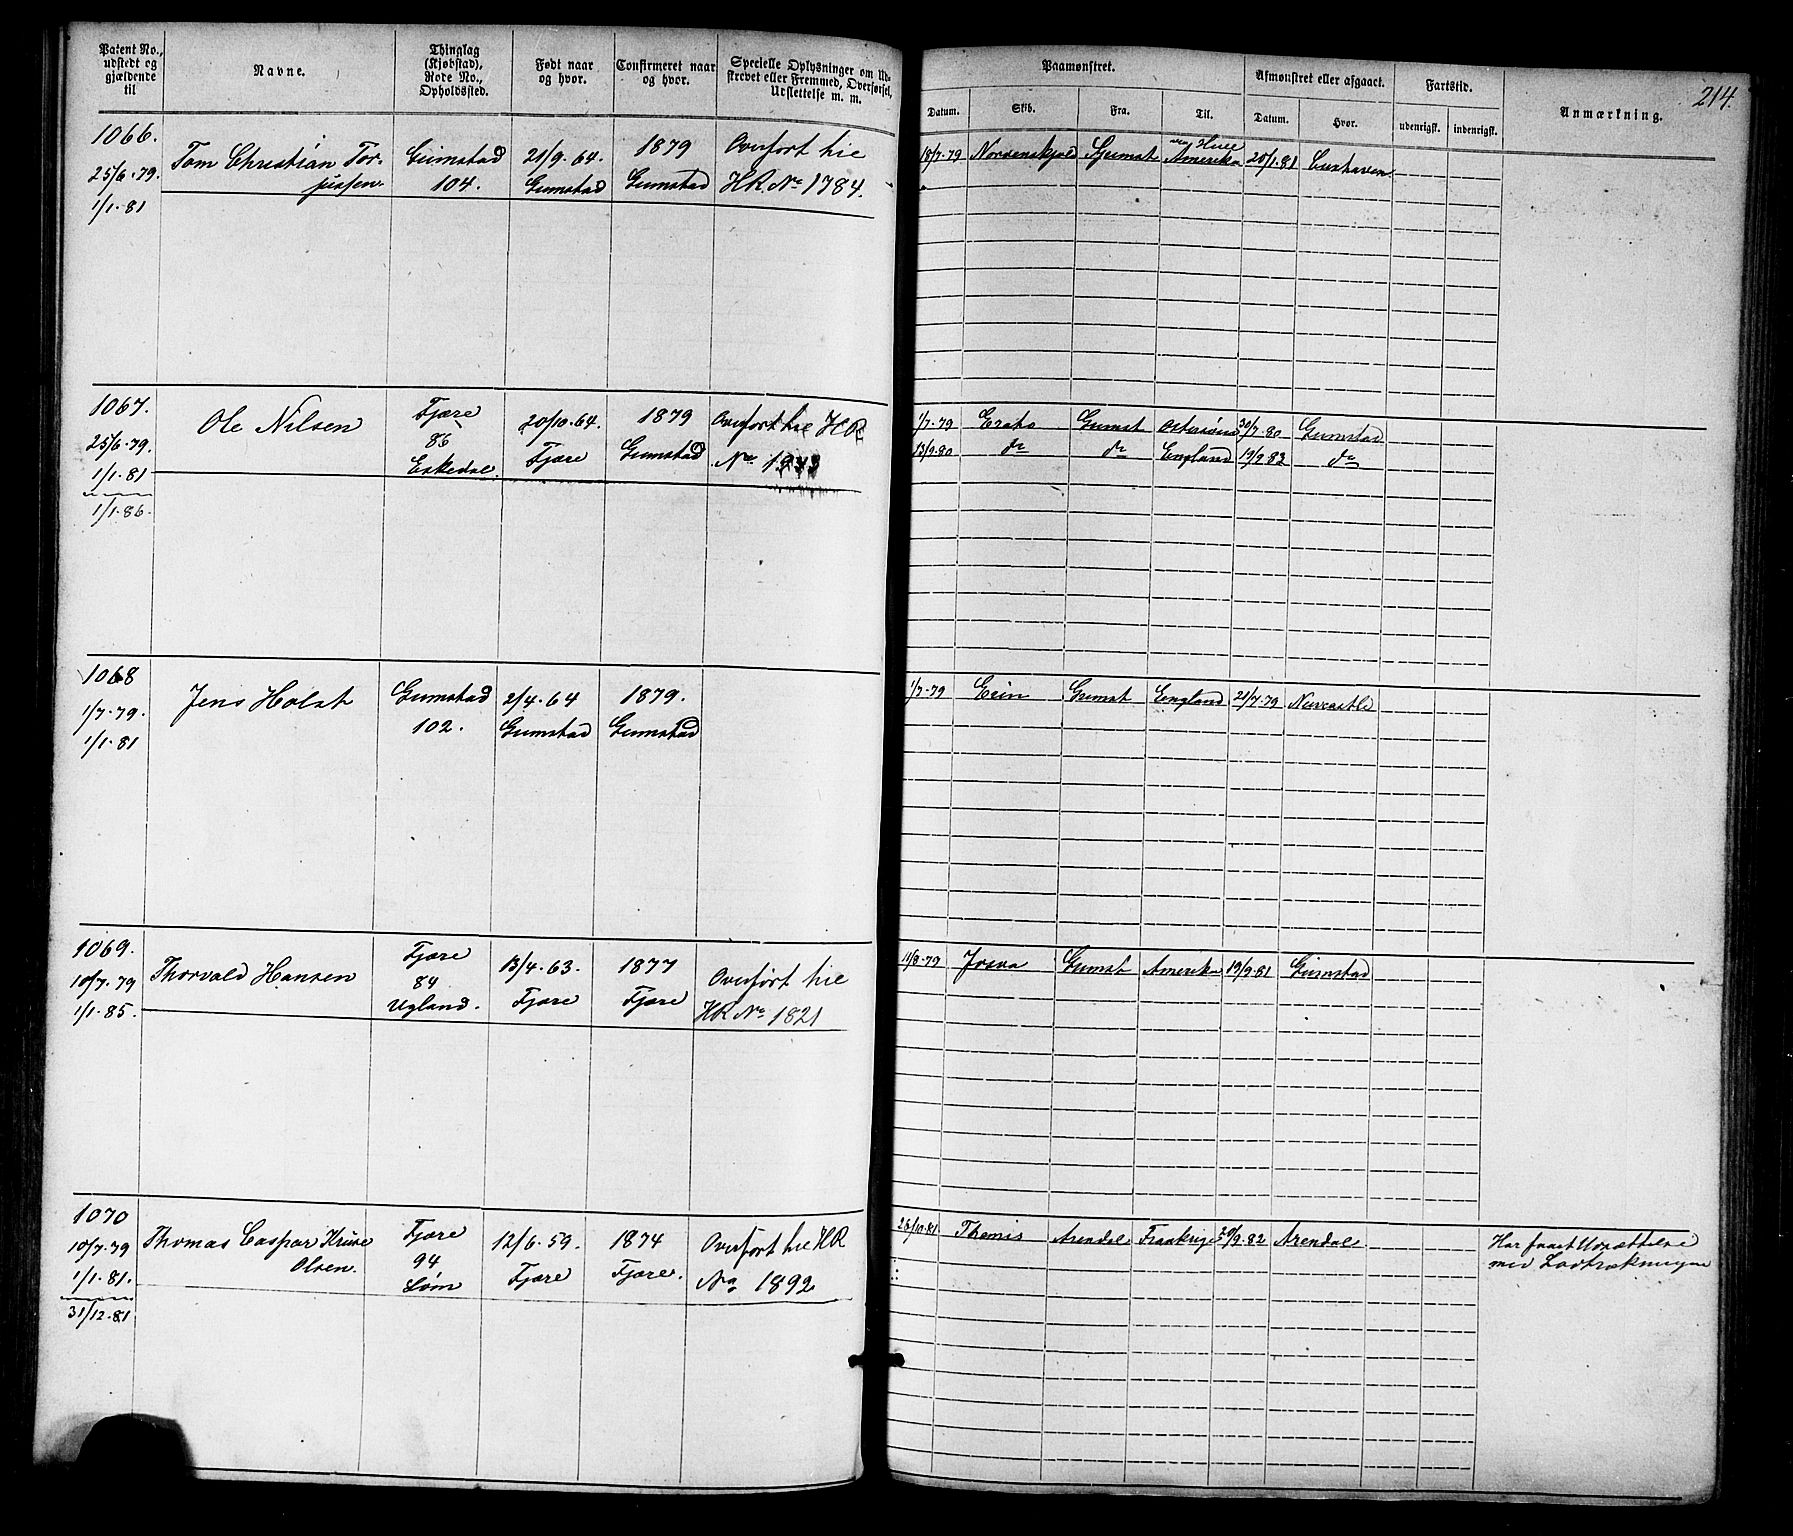 Patent No., udstedt og gjældende til
Navne.
Thinglag (Kjøbstad), Rode No., Opholdssted.
Født naar og hvor.
Confirmeret naar og hvor.
Specielle Oplysninger om Udskrevet eller Fremmed, Overførsel, Udslettelse m. m.
Paamønstret.
Datum.
Skib.
Fra.
Til.
Afmønstret eller afgaaet.
Datum.
Hvor.
Fartstid.
udenrigsk.
indenrigsk.
Anmærkning.
214.
1066.
25/6.79.
1/1.81
Tom Christian Tor-
jussen
Grimstad
104.
21/9.64.
Grimstad
1879
Grimstad
Overført hie
HR No 1784.
18/7.79 Nordenskjold Grimst Amerika 20/1.81 Cuxhaven
1067.
25/6.79.
1/1.81
1/1.86.
Ole Nilsen
Fjære
86
Eskedal
20/10.64.
Fjære
1879
Grimstad
Overført hie HR
No
1/7.79 Erato Grimst Østersøen 30/7.80 Grimstad
13/9.80 do do England 19/9.82 do
1068
1/7.79.
1/1.81
Jens Holst
Grimstad
102.
2/4.64
Grimstad
1879.
Grimstad
1/7.79 Erin Grimst England 21/7.79 Newcastle
1069.
10/7.79
1/1.85.
Thorvald Hansen
Fjære
84
Ugland.
13/4.63.
Fjære
1877
Fjære
Overført hie
HR No 1821
11/8.79 Josva Grimst Amerika 19/9.81 Grimstad
1070
10/7.79
1/1.81.
31/12.81
Thomas Caspar Kruse
Olsen.
Fjære
94
Løm
12/6.59.
Fjære
1874
Fjære.
Overført hie HR
No 1892
26/10.81 Themis Arendal Frankrige 20/9.82 Arendal
Har faaet Udsættelse
med Lodtrækningen